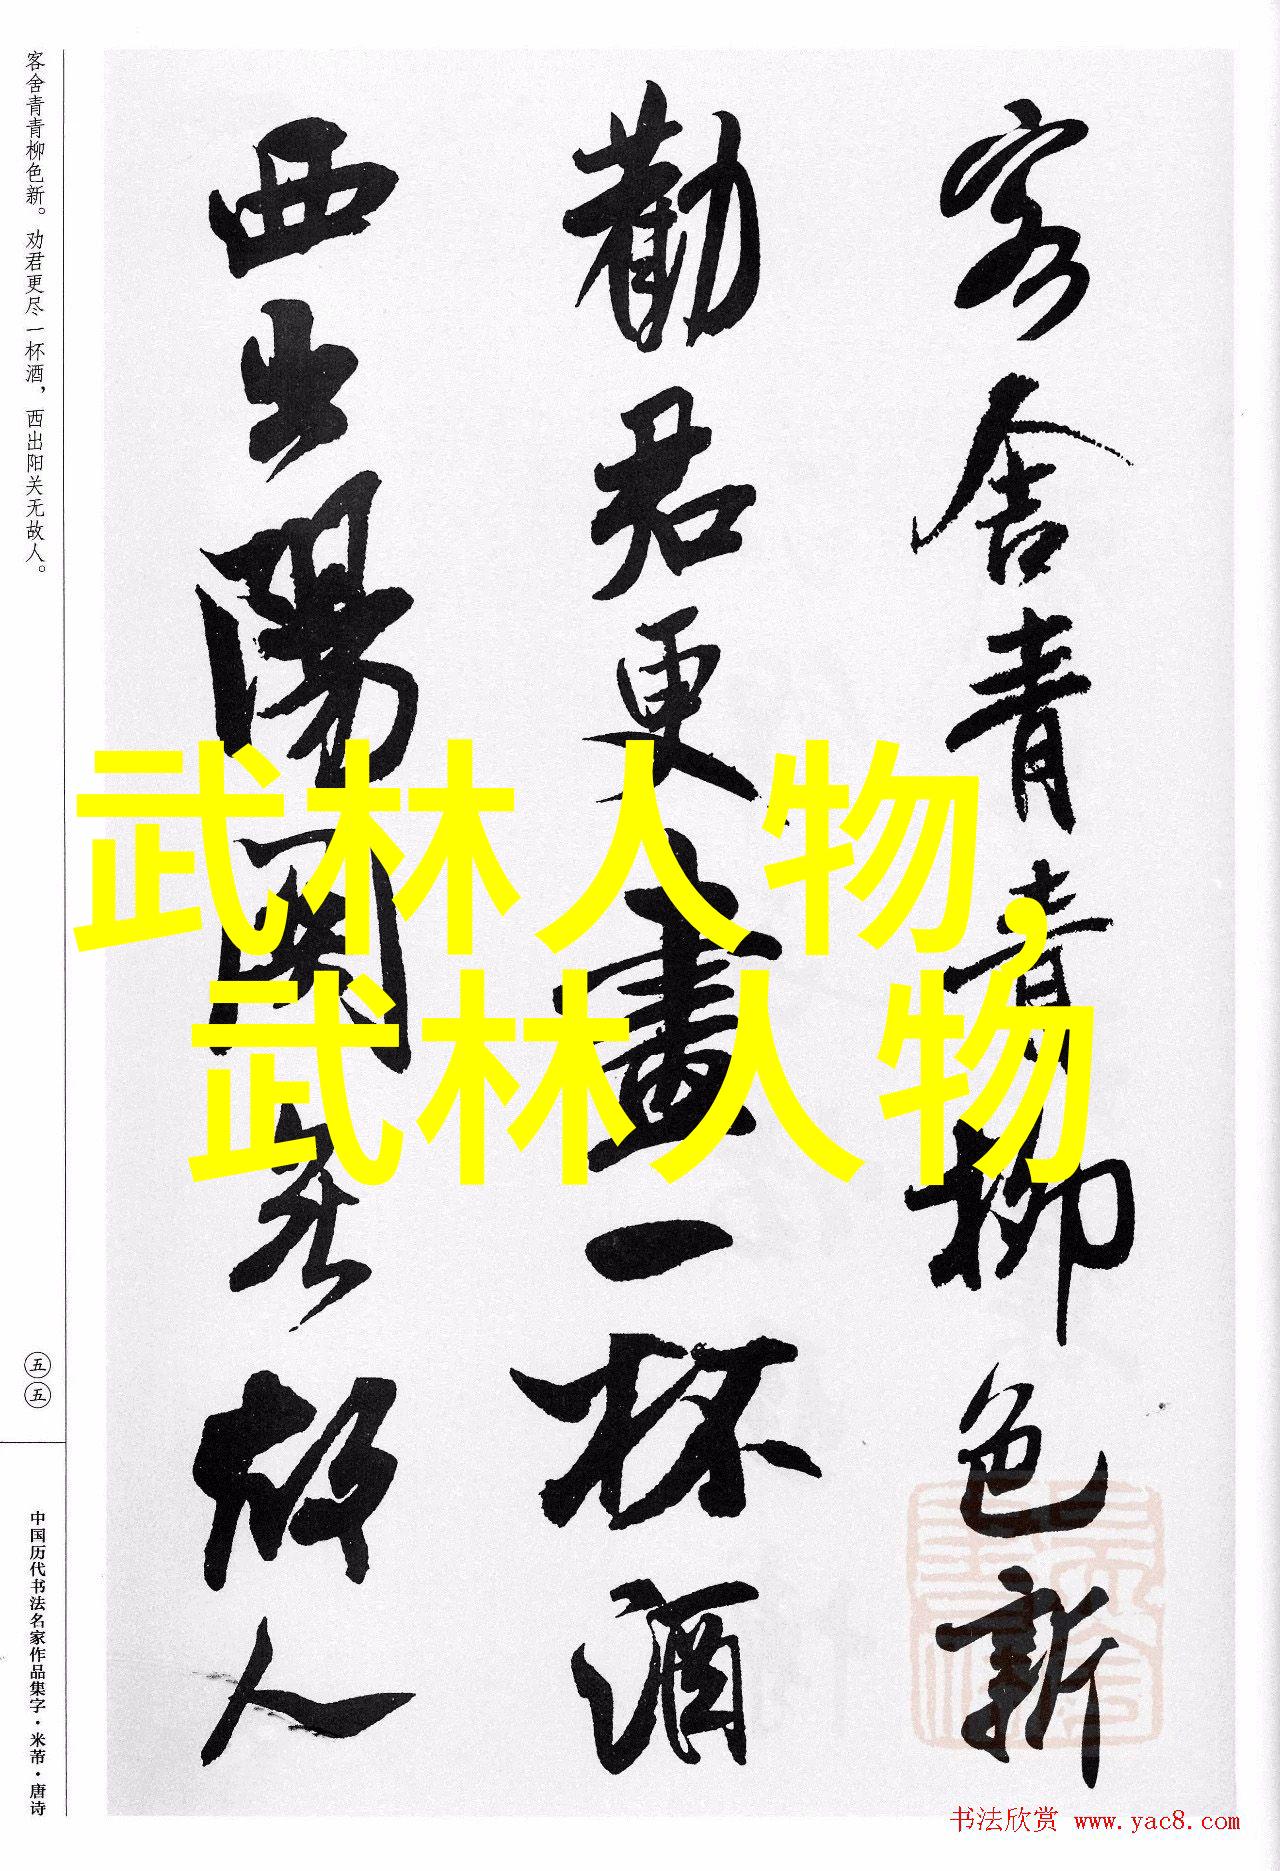 客舍青青柳色新
勸君更盡一杯酒
西出陽關無故人
客舍青青柳色新。劝君更尽一杯酒，西出阳关无故人。
五五
中国历代书法名家作品集字·米芾·唐诗
武林人物，
武林人物
书法欣赏 www.yac8.com